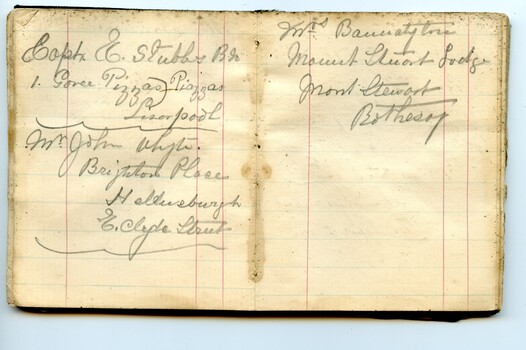 Capt E. Stubbs
1. Goree Piazzas Piazzas
Liverpool
Mr John Whyte.
Brighton Place
Hellensburgh
E. Clyde Street
Mrs Bannatyne
Mount Stuart Lodge
Mont Stewart
Rothesay